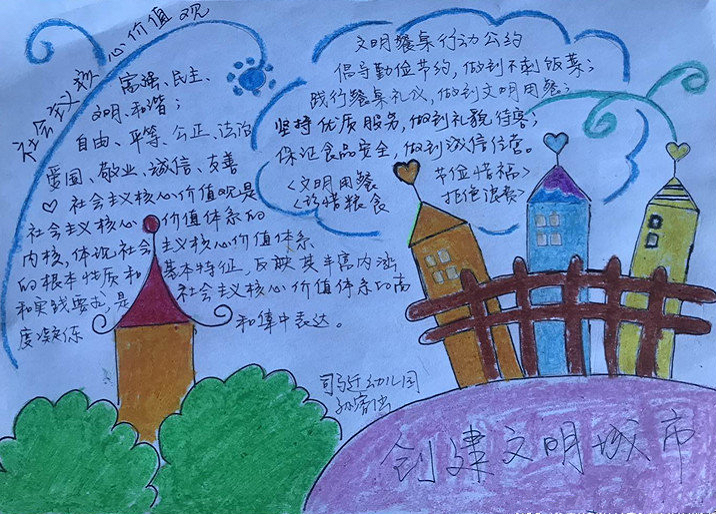 社会主义核心价值观
富强、民主、
文明、和谐；
自由、平等、公正、法治
爱国、敬业、诚信、友善
♡ 社会主义核心价值观是
社会主义核心价值体系的
内核，体现社会主义核心价值体系
的根本性质和基本特征，反映其丰富内涵
和实践要求，是社会主义核心价值体系的高
度凝练和集中表达。
文明餐桌行动公约
倡导勤俭节约，做到不剩饭菜；
践行餐桌礼仪，做到文明用餐；
坚持优质服务，做到礼貌待客；
保证食品安全，做到诚信经营。
<文明用餐 节俭惜福>
<珍惜粮食 拒绝浪费>
幼儿园
创建文明城市